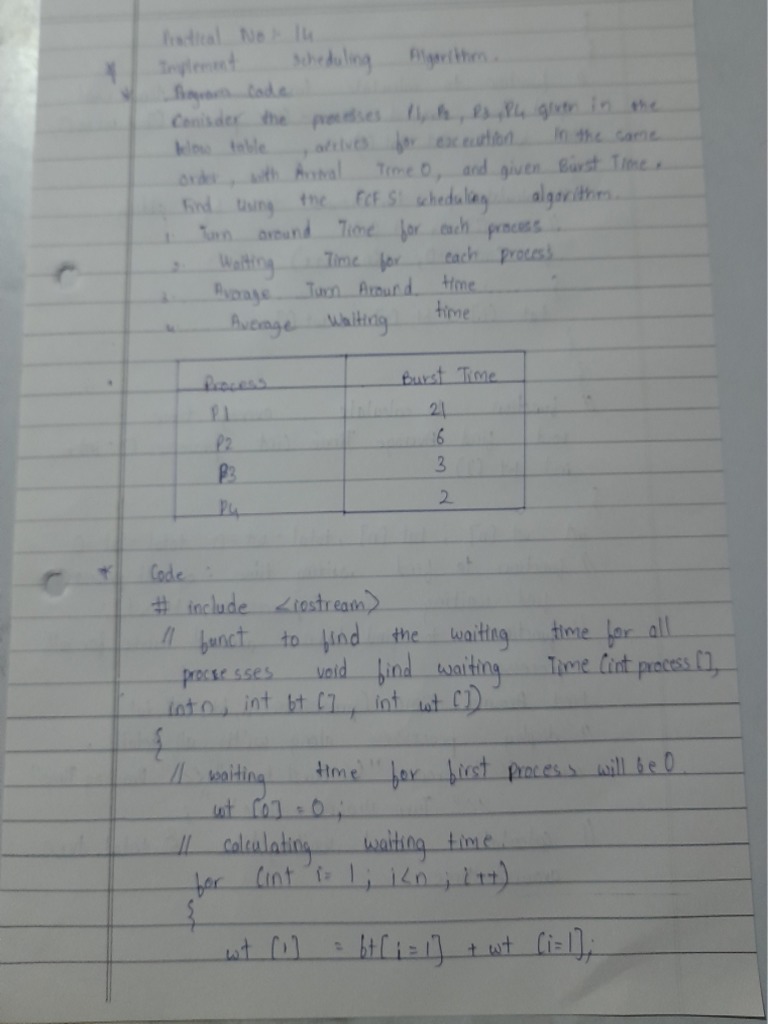 Practical No :- 14
* Implement Scheduling Algorithm.
* Program Code
Conisder the processes P1, P2, P3, P4 given in the
below table, arrives for excecution in the same
order, with Arrival Time 0, and given Burst Time.
Find using the FCFS scheduling algorithm.
1. Turn around Time for each process.
2. Waiting Time for each process
3. Average Turn Around time
4. Average Waiting time
Process Burst Time
P1 21
P2 6
P3 3
P4 2
* Code :
# include <iostream>
// funct to find the waiting time for all
processes void find waiting Time (int process [],
int n; int bt [], int wt [])
{
// waiting time for first process will be 0
wt [0] = 0;
// calculating waiting time.
for (int i= 1; i<n; i++)
{
wt [i] = bt[i=1] + wt [i=1];